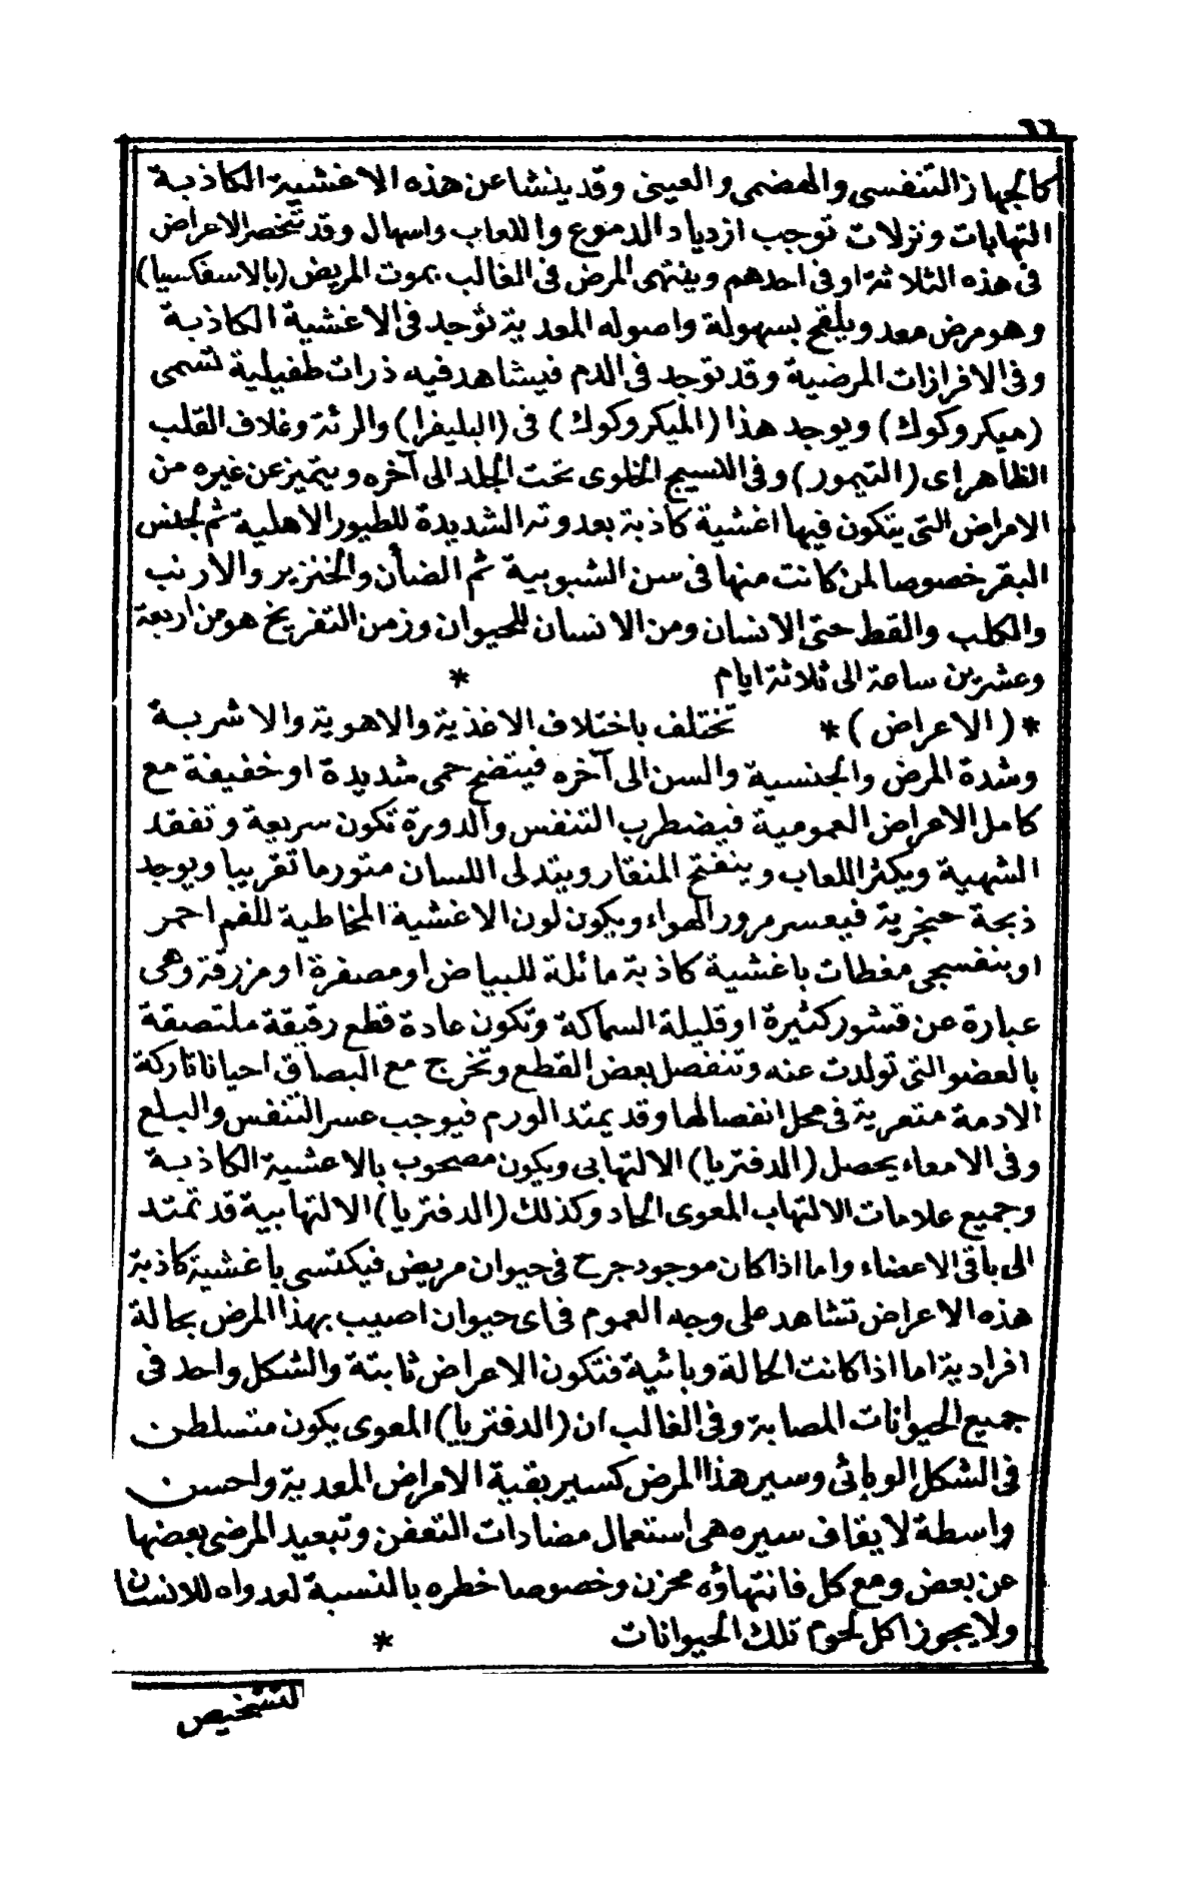 ٦٦
كالجهاز التنفسى والهضمى والعينى وقد ينشا عن هذه الاغشية الكاذبة
التهابات ونزلات توجب ازدياد الدموع واللعاب واسهال وقد تنحصر الاعراض
فى هذه الثلاثة او فى احدهم وينتهى المرض فى الغالب بموت المريض (بالاسفكسيا)
وهو مرض معد ويلقح بسهولة واصوله المعدية توجد فى الاغشية الكاذبة
وفى الافرازات المرضية وقد توجد فى الدم فيشاهد فيه ذرات طفيلية تسمى
(ميكروكوك) ويوجد هذا (الميكروكوك) فى (البليفرا) والرئة وغلاف القلب
الظاهر اى (التيمور) وفى النسيج الخلوى تحت الجلد الى آخره ويتميز عن غيره من
الامراض التى يتكون فيها اغشية كاذبة بعدوته الشديدة للطيور الاهلية ثم لجنس
البقر خصوصا لمن كانت منها فى سن الشبوبية ثم الضأن والخنزير والارنب
والكلب والقط حتى الانسان ومن الانسان للحيوان وزمن التفريخ هو من اربعة
وعشرين ساعة الى ثلاثة ايام *
* (الاعراض) * تختلف باختلاف الاغذية والاهوية والاشربة
وشدة المرض والجنسية والسن الى آخره فيتضح حمى شديدة او خفيفة مع
كامل الاعراض العمومية فيضطرب التنفس والدورة تكون سريعة وتفقد
الشهية ويكثر اللعاب وينفتح المنقار ويتدلى اللسان متورما تقريبا ويوجد
ذبحة حنجرية فيعسر مرور الهواء ويكون لون الاغشية المخاطية للفم احمر
او بنفسجى مغطات باغشية كاذبة مائلة للبياض او مصفرة او مزرقة وهى
عبارة عن قشور كثيرة او قليلة السماكة وتكون عادة قطع رقيقة ملتصقة
بالعضو التى تولدت عنه وتنفصل بعض القطع وتخرج مع البصاق احيانا تاركة
الادمة متعرية فى محل انفصالها وقد يمتد الورم فيوجب عسر التنفس والبلع
وفى الامعاء يحصل (الدفتريا) الالتهابى ويكون مصحوب بالاعشية الكاذبة
وجميع علامات الالتهاب المعوى الحاد وكذلك (الدفتريا) الالتهابية قد تمتد
الى باقى الاعضاء واما اذا كان موجود جرح فى حيوان مريض فيكتسى باغشية كاذبة
هذه الاعراض تشاهد على وجه العموم فى اى حيوان اصيب بهذا المرض بحالة
افرادية اما اذا كانت الحالة وبائية فتكون الاعراض ثابتة والشكل واحد فى
جميع الحيوانات المصابة وفى الغالب ان (الدفتريا) المعوى يكون متسلطن
فى الشكل الوبائى وسير هذا المرض كسير بقية الامراض المعدية واحسن
واسطة لايقاف سيره هى استعمال مضادات التعفن وتبعيد المرضى بعضها
عن بعض ومع كل فانتهاؤه محزن وخصوصا خطره بالنسبة لعدواه للانسان
ولا يجوز اكل لحوم تلك الحيوانات *
لتشخيص